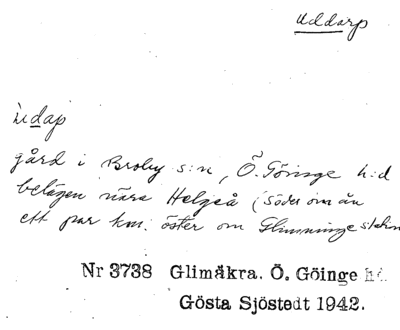 Uddarp
udap
gård i Broby s:n, Ö. Göinge h:d
belägen nära Helgeå (söder om ån
ett par km. öster om Glimminge station
Nr 3738 Glimåkra. Ö. Göinge hd.
Gösta Sjöstedt 1942.